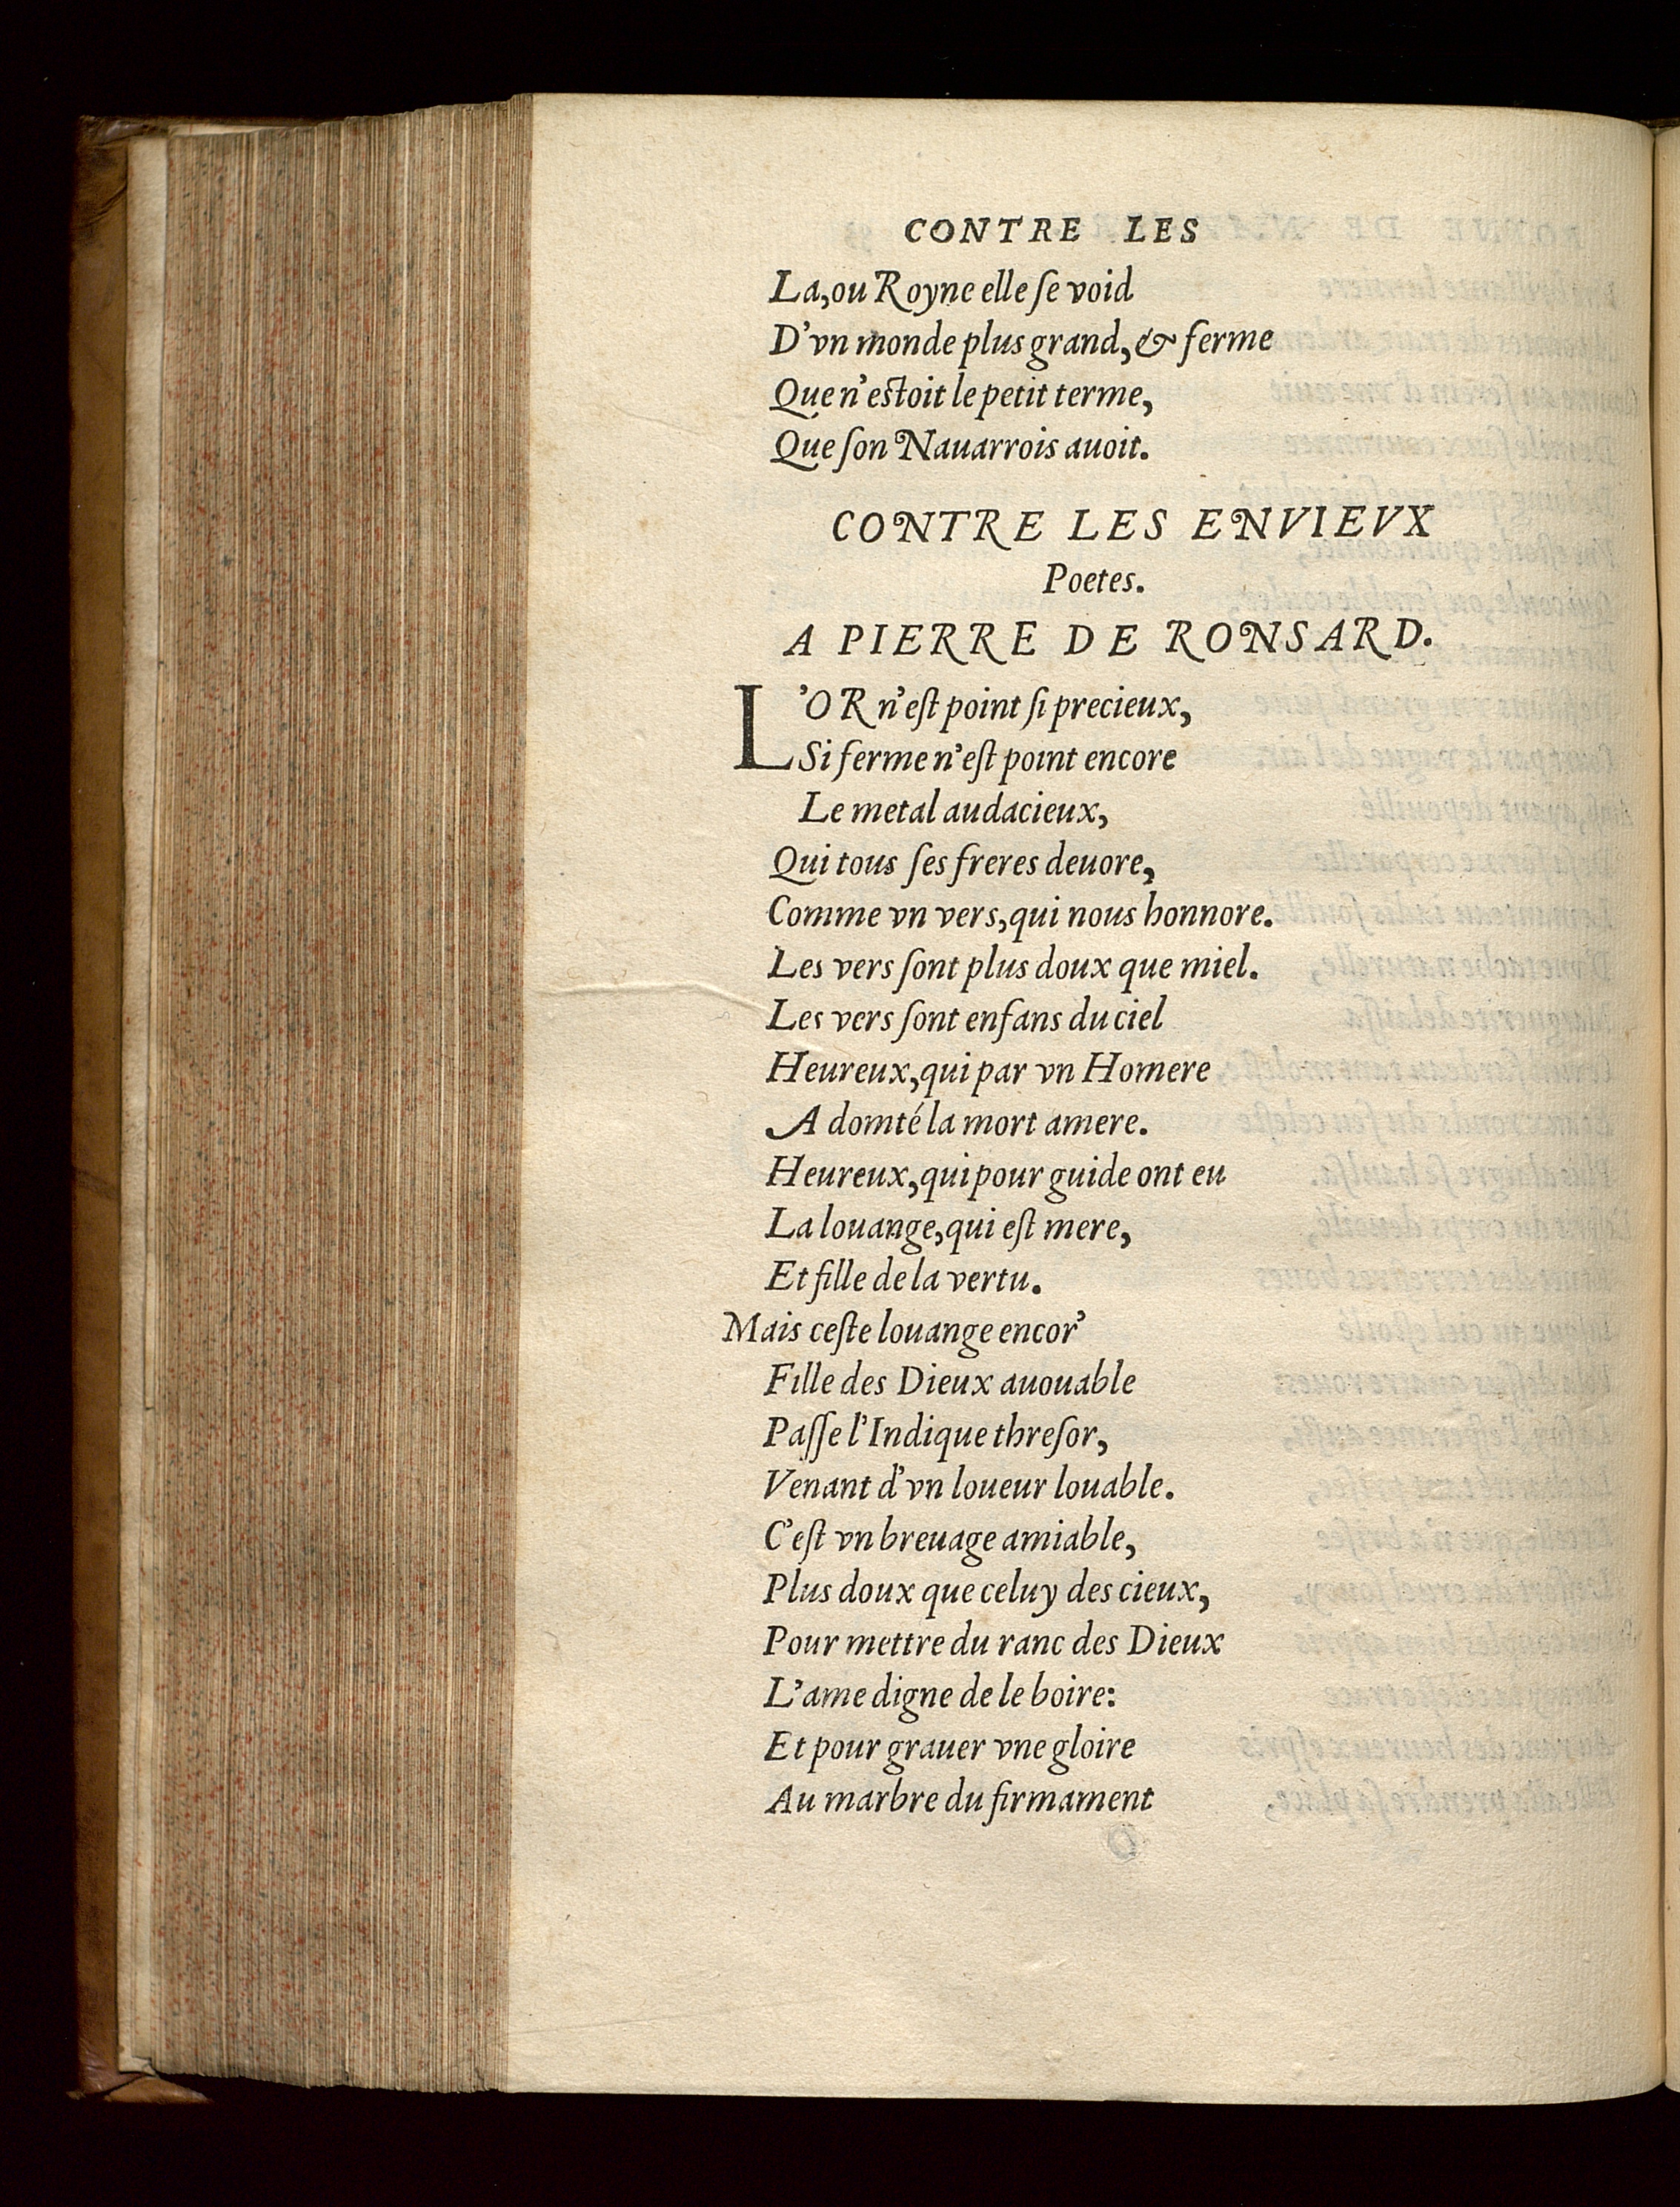 CONTRE LES
La, ou Royne elle ſe void
D'vn monde plus grand, & ferme
Que n'eſtoit le petit terme,
Que ſon Nauarrois auoit.
CONTRE LES ENVIEVX
Poetes.
A PIERRE DE RONSARD.
L'OR n'eſt point ſi precieux,
Si ferme n'eſt point encore
Le metal audacieux,
Qui tous ſes freres deuore,
Comme vn vers, qui nous honnore.
Les vers ſont plus doux que miel.
Les vers ſont enfans du ciel
Heureux, qui par vn Homere
A domté la mort amere.
Heureux, qui pour guide ont eu
La louange, qui eſt mere,
Et fille de la vertu.
Mais ceſte louange encor'
Fille des Dieux auouable
Paſſe l'Indique threſor,
Venant d'vn loueur louable.
C'eſt vn breuage amiable,
Plus doux que celuy des cieux,
Pour mettre du ranc des Dieux
L'ame digne de le boire:
Et pour grauer vne gloire
Au marbre du firmament